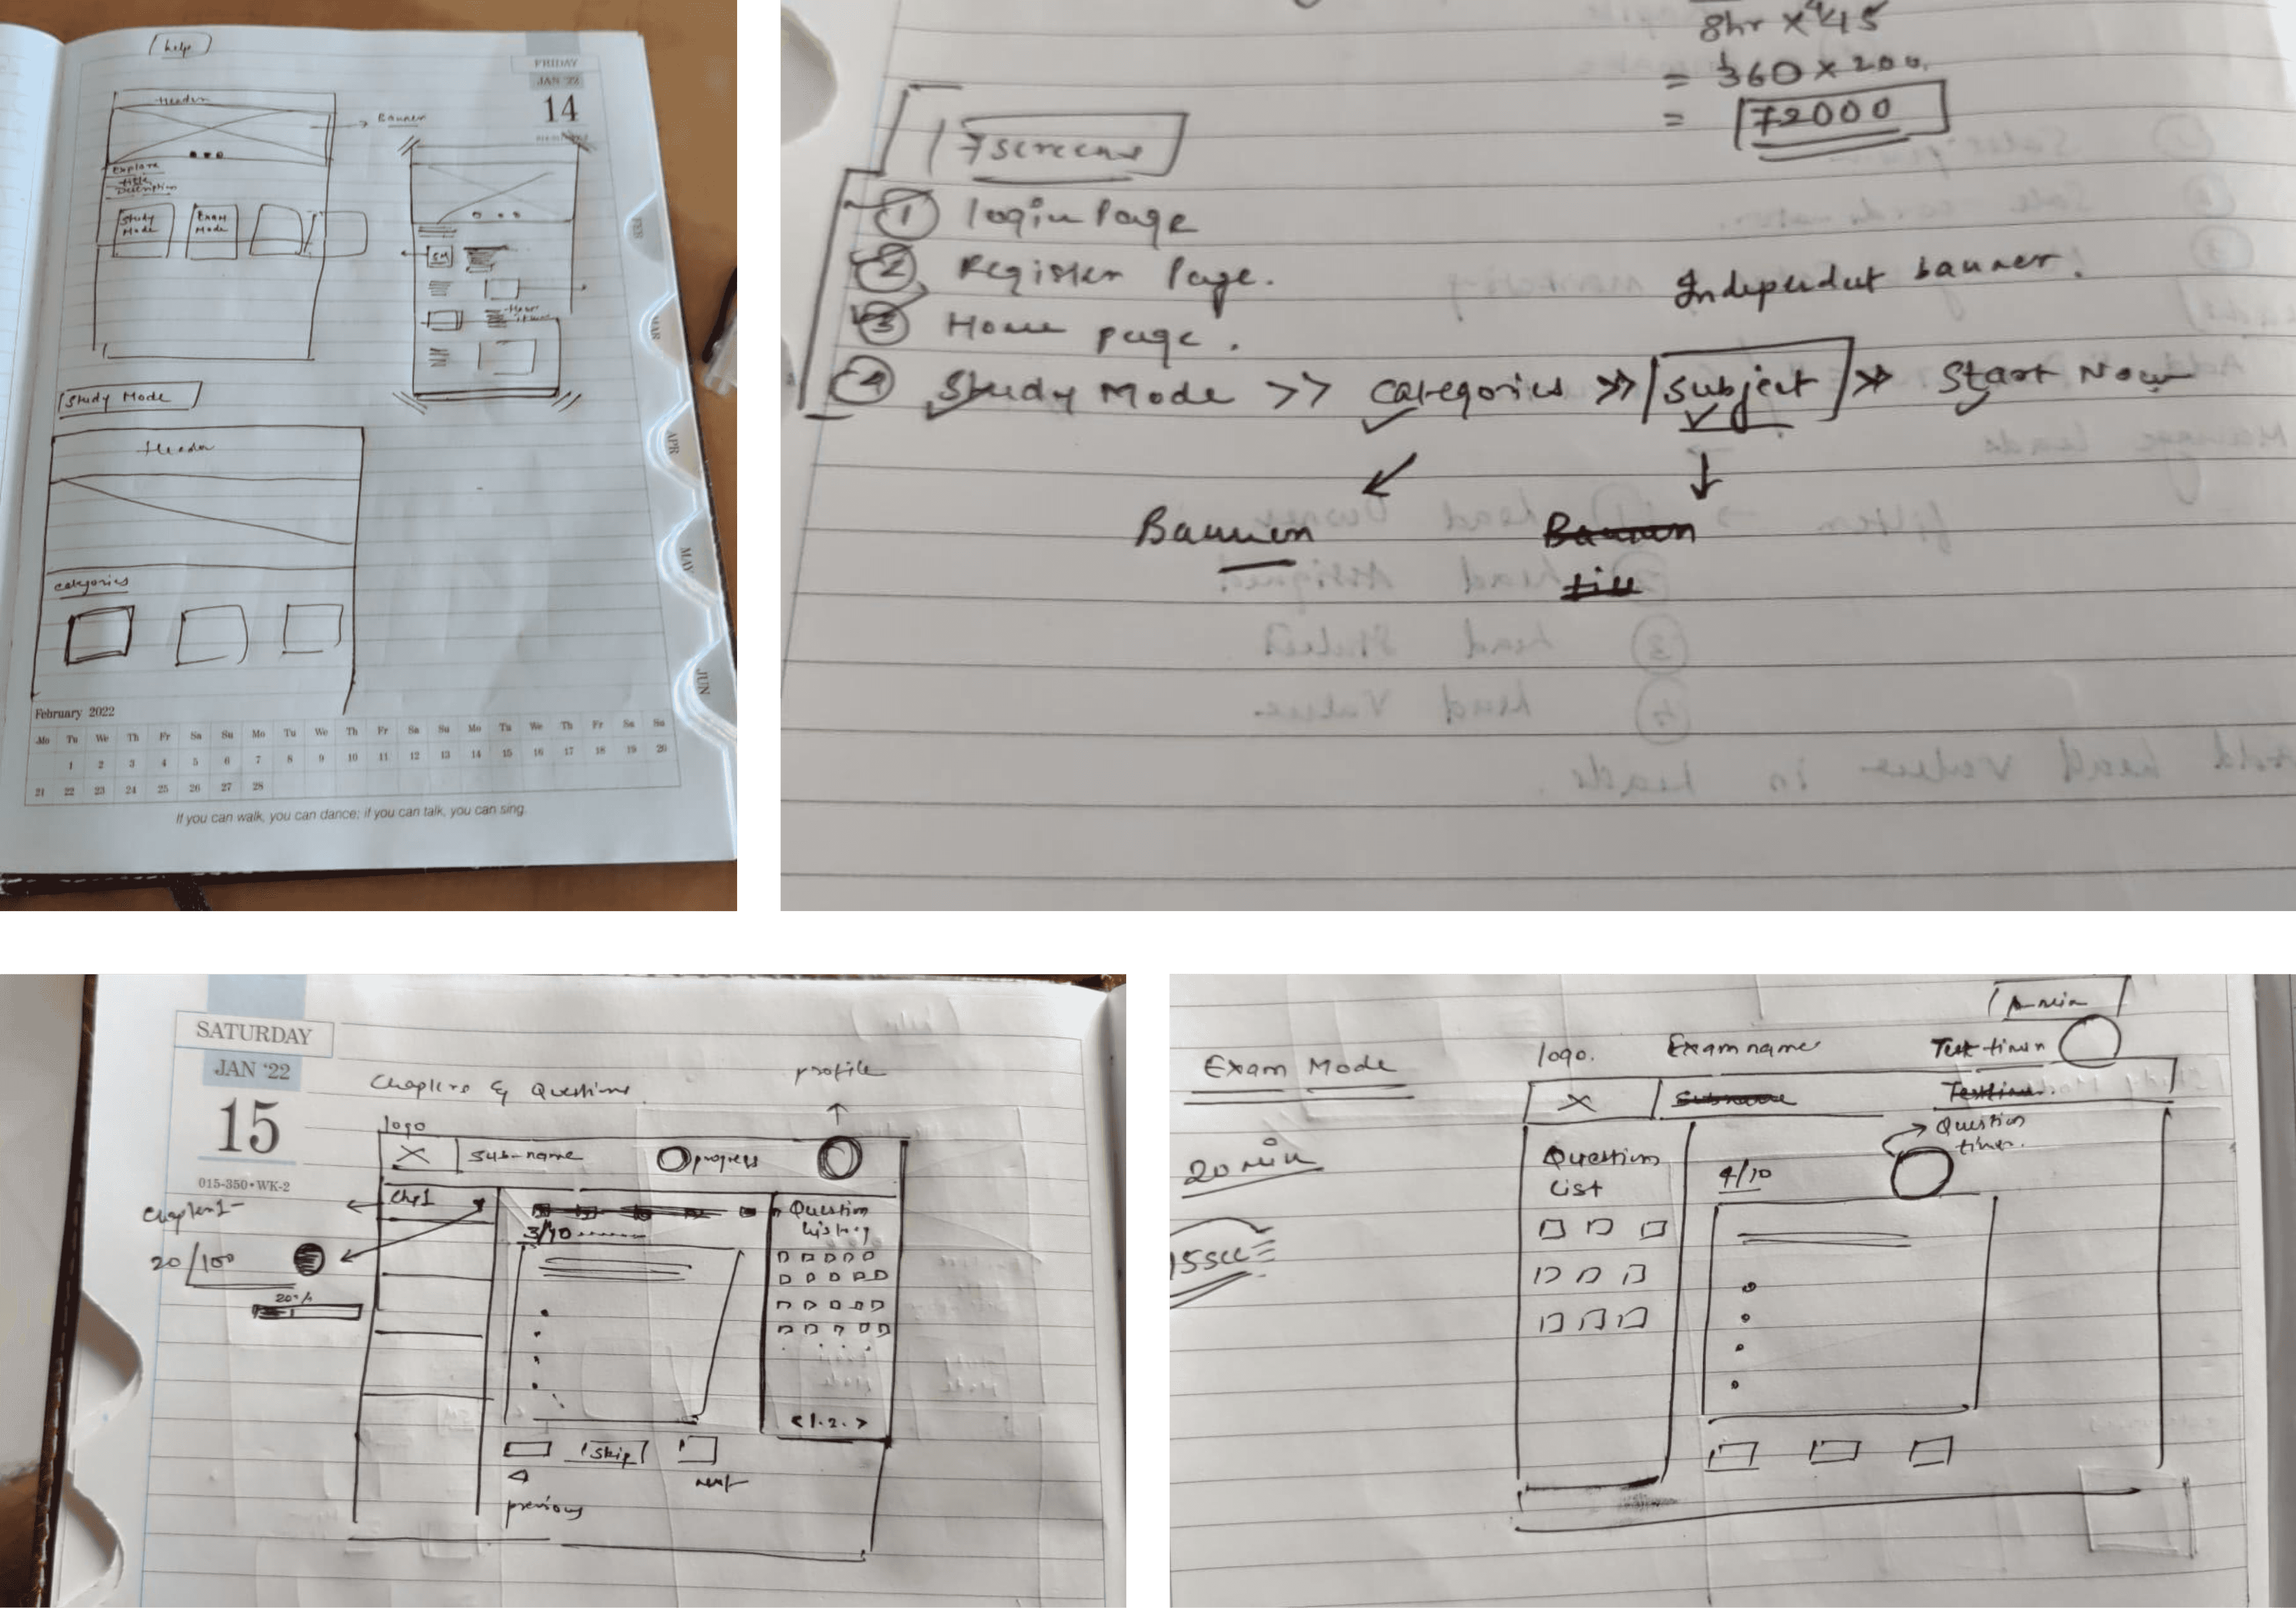 help
FRIDAY
JAN '22
14
Header
Banner
Explore
Title
Description
Study Mode
Exam Mode
SM
Study Mode
Header
categories
FEB
MAR
APR
MAY
JUN
February 2022
Mo Tu We Th Fr Sa Su Mo Tu We Th Fr Sa Su Mo Tu We Th Fr Sa Su
1 2 3 4 5 6 7 8 9 10 11 12 13 14 15 16 17 18 19 20
21 22 23 24 25 26 27 28
If you can walk, you can dance; if you can talk, you can sing.
8hr x 45
= 360 x 200
= 72000
7 screens
1 login Page
2 Register Page.
3 Home page.
Independent banner.
4 Study Mode >> categories >> subject >> Start Now
Banner
Banner
SATURDAY
JAN '22
15
015-350•WK-2
Chapters & Questions
profile
logo
X sub-name progress
Chp1
Question listing
Chapter 1-
20/100
20%
3/10
<1.2.>
skip
next
previous
Exam Mode
logo. Exam name Test timer
X
Question timer.
20 min
Question List
4/10
15sec